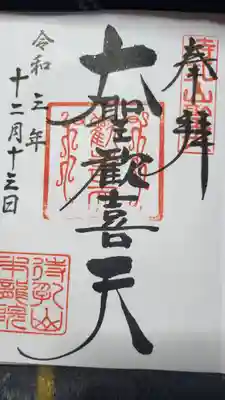 奉拝
大聖歓喜天
令和三年
十二月十三日
待乳山
本龍院